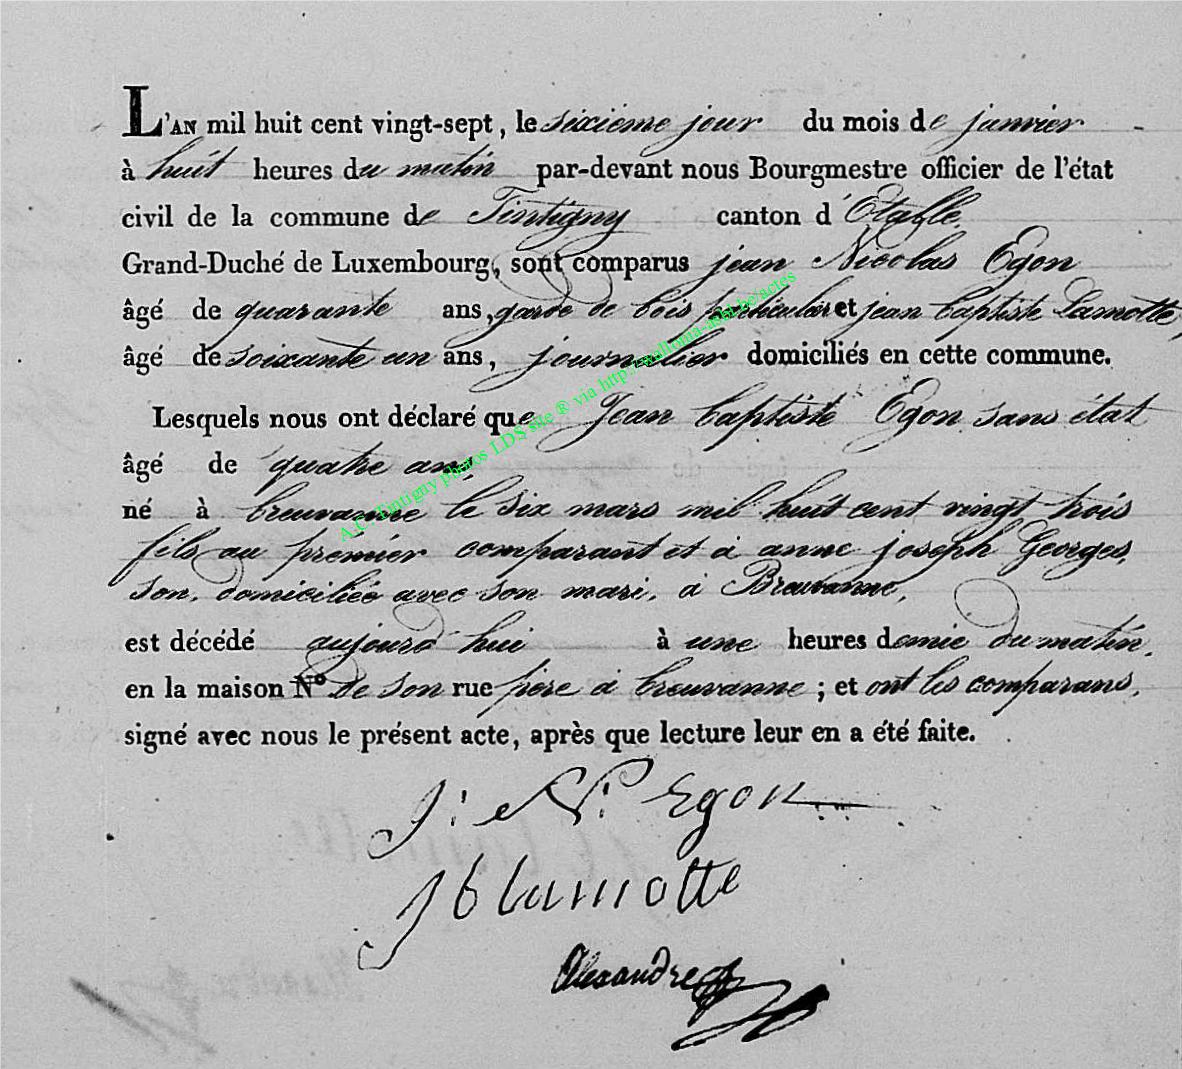 L'AN mil huit cent vingt-sept, le sixième jour du mois de janvier
à huit heures du matin par-devant nous Bourgmestre officier de l'état
civil de la commune de Tintigny canton d'Etalle
Grand-Duché de Luxembourg, sont comparus jean Nicolas Egon
âgé de quarante ans, garde de bois particulier et jean baptiste Lamotte,
âgé de soixante un ans, journalier domiciliés en cette commune.
Lesquels nous ont déclaré que Jean baptiste Egon sans état
âgé de quatre ans
né à breuvanne le six mars mil huit cent vingt trois
fils au premier comparant et à anne joseph Georges,
son, domiciliée avec son mari, à Breuvanne,
est décédé aujourd'hui à une heures demie du matin,
en la maison N° de son rue père à breuvanne ; et ont les comparans,
signé avec nous le présent acte, après que lecture leur en a été faite.
J: N: Egon
J b Lamotte
Alexandre
A.C. Tintigny photos LDS site ® via http://wallonia-asbl.be/actes